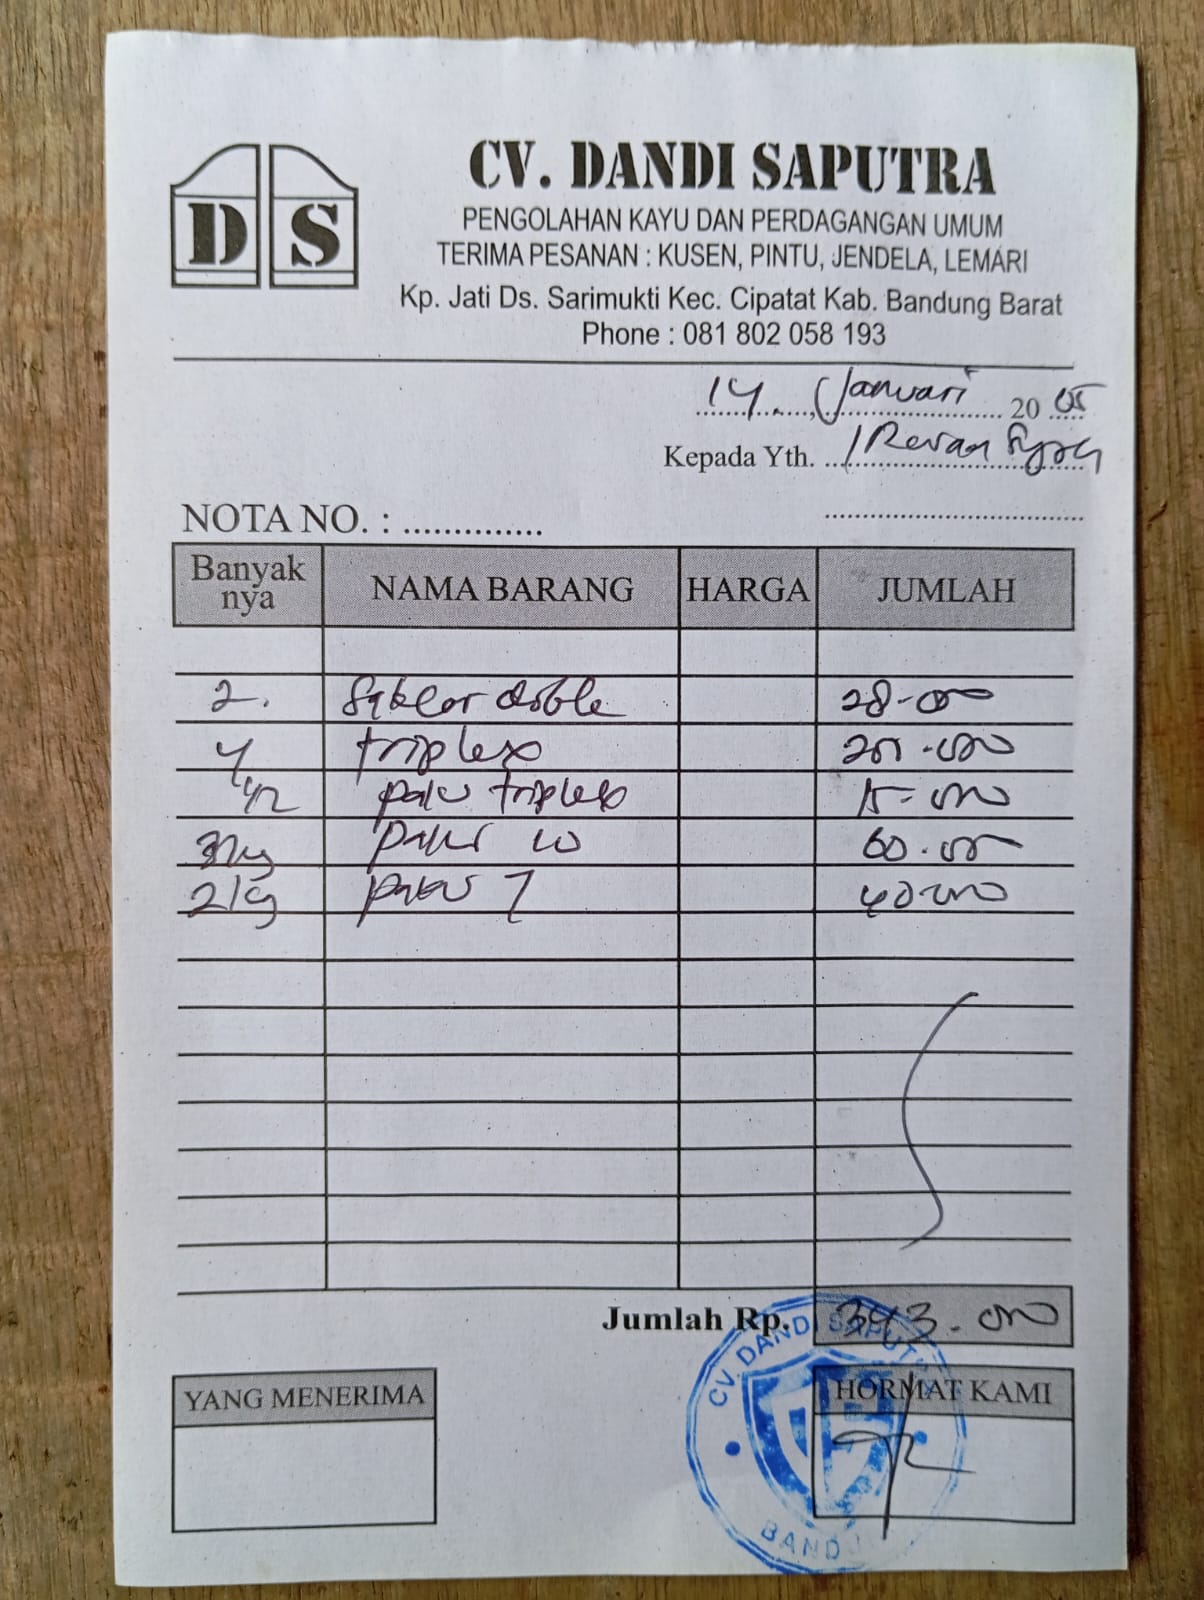 D S
CV. DANDI SAPUTRA
PENGOLAHAN KAYU DAN PERDAGANGAN UMUM
TERIMA PESANAN : KUSEN, PINTU, JENDELA, LEMARI
Kp. Jati Ds. Sarimukti Kec. Cipatat Kab. Bandung Barat
Phone : 081 802 058 193
14 Januari 20
Kepada Yth.
NOTA NO. : ..............
Banyak nya NAMA BARANG HARGA JUMLAH
2. doble 28.000
4 triplex
paku triplex 15.000
paku 10 60.000
2 kg paku 7 40.000
Jumlah Rp. 343.000
YANG MENERIMA HORMAT KAMI
CV DANDI SAPUT
BAND